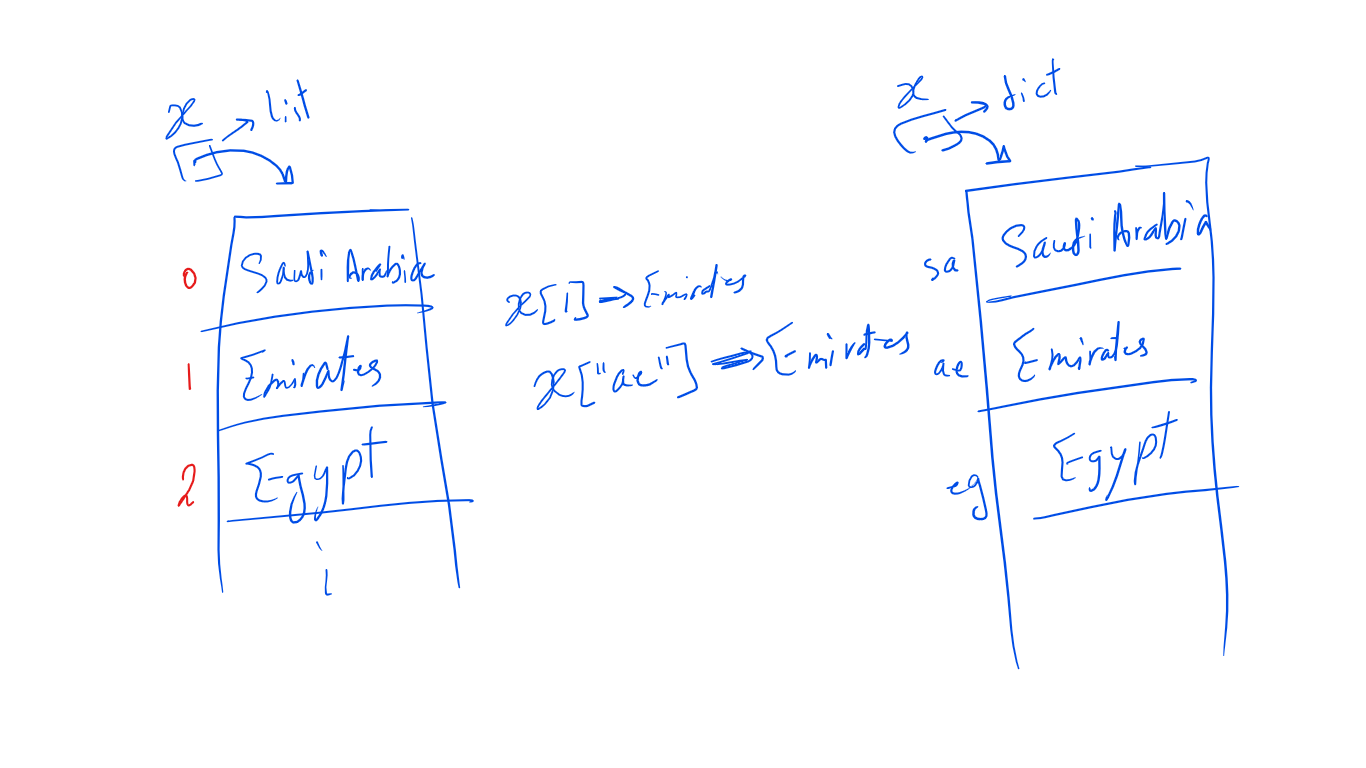 x → list
0 Saudi Arabia
1 Emirates
2 Egypt
x[1] → Emirates
x["ae"] → Emirates
x → dict
sa Saudi Arabia
ae Emirates
eg Egypt